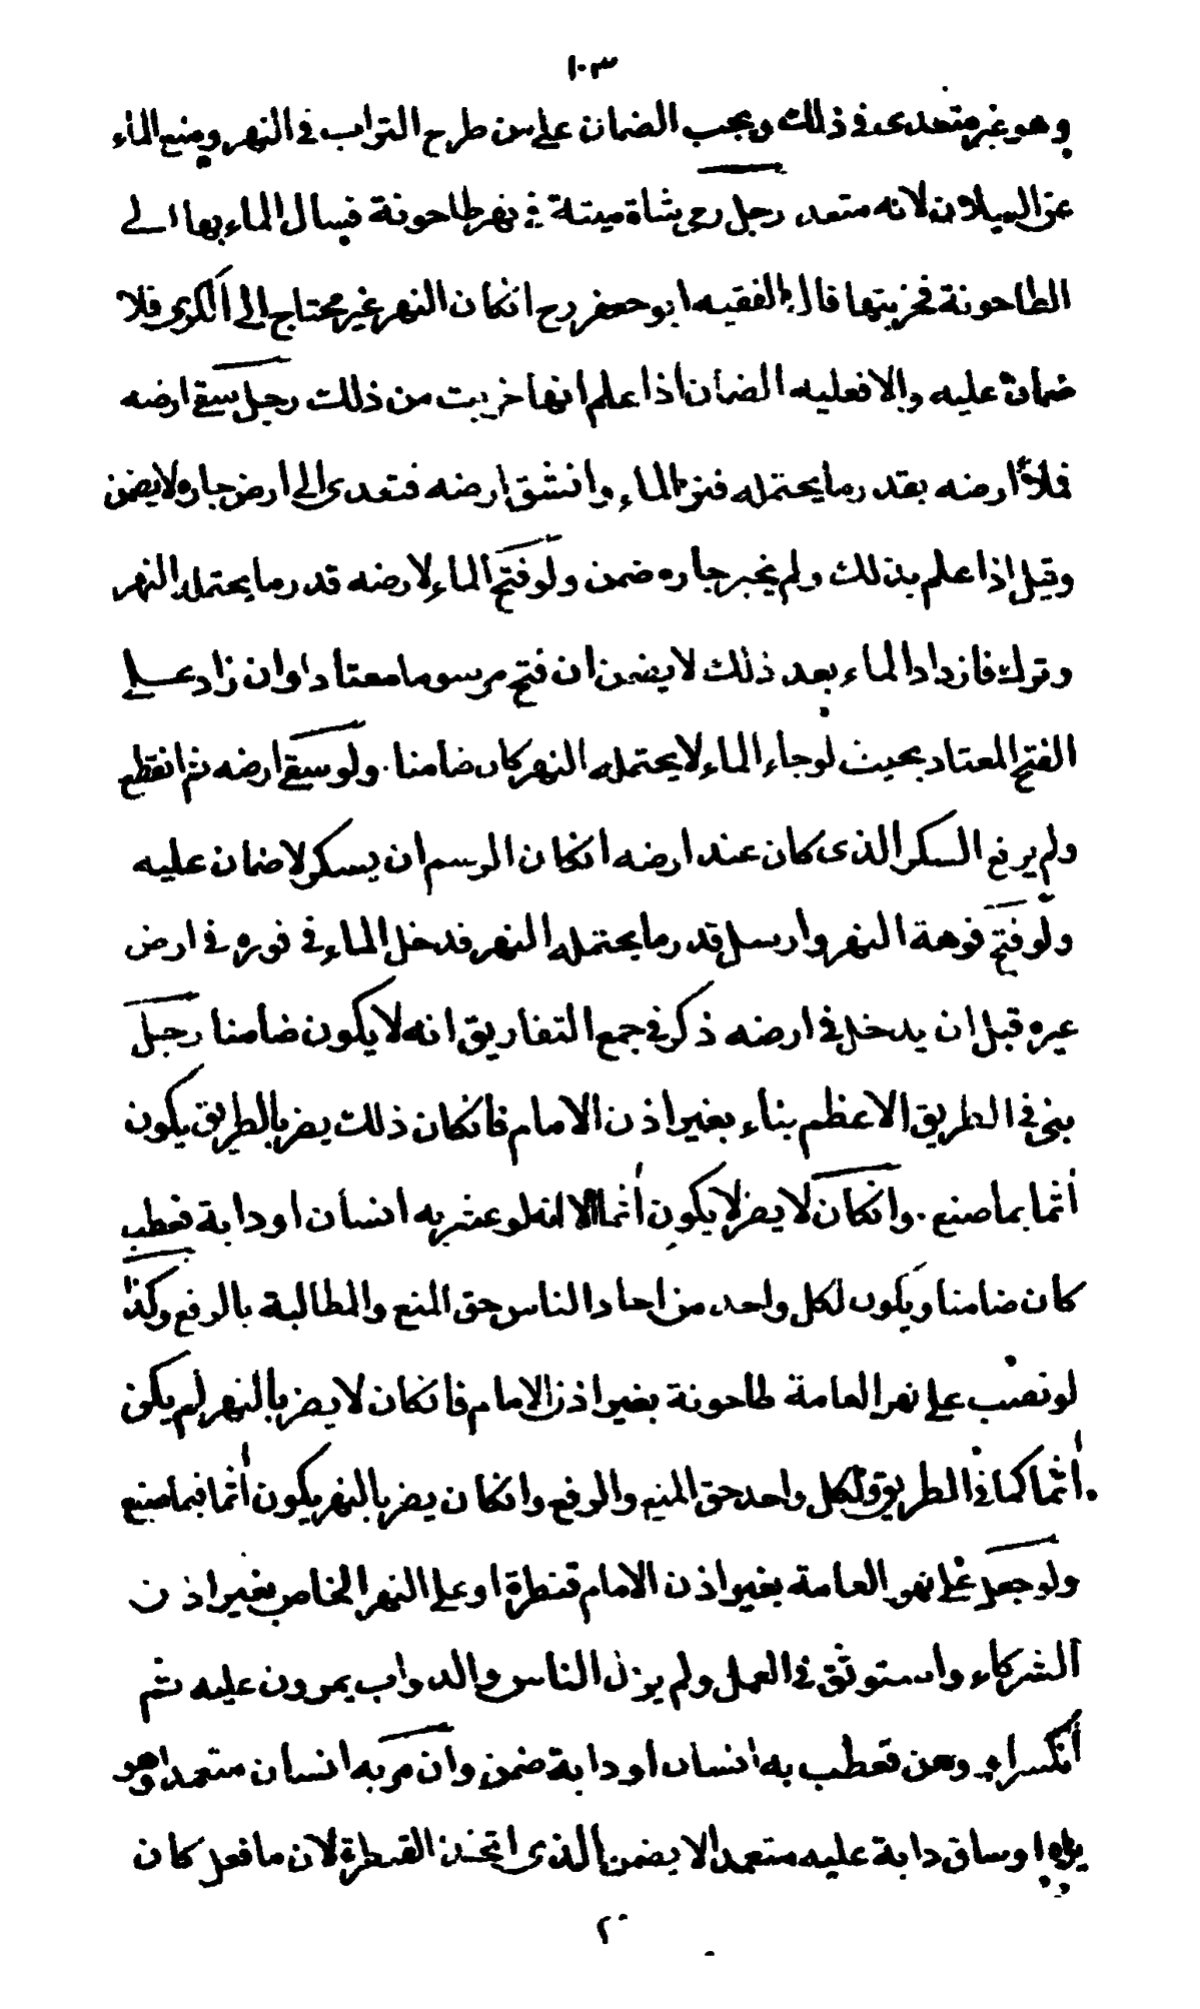 ١٠٣
وهو غير متعدى فى ذلك ويجب الضمان على من طرح التراب فى النهر ومنع الماء
عن السيلان لانه متعد رجل رمى بشاة ميتة فى نهر طاحونة فسال الماء بها الى
الطاحونة فخربتها قال الفقيه ابو جعفر رح انكان النهر غير محتاج الى الكرى فلا
ضمان عليه والا فعليه الضمان اذا علم انها خربت من ذلك رجل سقى ارضه
فملأ ارضه بقدر ما يحتمله فنز الماء وانشق ارضه فتعدى الى ارض جاره لا يضمن
وقيل اذا علم بذلك ولم يخبر جاره ضمن ولو فتح الماء لارضه قدر ما يحتمله النهر
وترك فازداد الماء بعد ذلك لا يضمن ان فتح مرسوما معتادا وان زاد على
الفتح المعتاد بحيث لو جاء الماء لا يحتمله النهر كان ضامنا ٠ ولو سقى ارضه ثم انقطع
ولم يرفع السكر الذى كان عند ارضه انكان الرسم ان يسكر لا ضمان عليه
ولو فتح فوهة النهر وارسل قدر ما يحتمله النهر فدخل الماء فى فوره فى ارض
غيره قبل ان يدخل فى ارضه ذكر فى جمع التفاريق انه لا يكون ضامنا رجل
بنى فى الطريق الاعظم بناء بغير اذن الامام فانكان ذلك يضر بالطريق يكون
اثما بما صنع ٠ وانكان لا يضر لا يكون اثما الا انه لو عثر به انسان او دابة فعطب
كان ضامنا ويكون لكل واحد من احاد الناس حق المنع والمطالبة بالرفع وكذا
لو نصب على نهر العامة طاحونة بغير اذن الامام فانكان لا يضر بالنهر لم يكن
اثما كما فى الطريق ولكل واحد حق المنع والرفع وانكان يضر بالنهر يكون اثما فيما صنع
ولو جعل على نهر العامة بغير اذن الامام قنطرة او على النهر الخاص بغير اذن
الشركاء واستوثق فى العمل ولم يزل الناس والدواب يمرون عليه ثم
انكسر او وهن فعطب به انسان او دابة ضمن وان مر به انسان متعمدا وهو
يراه او ساق دابة عليه متعمدا لا يضمن الذى اتخذ القنطرة لان ما فعل كان
٢